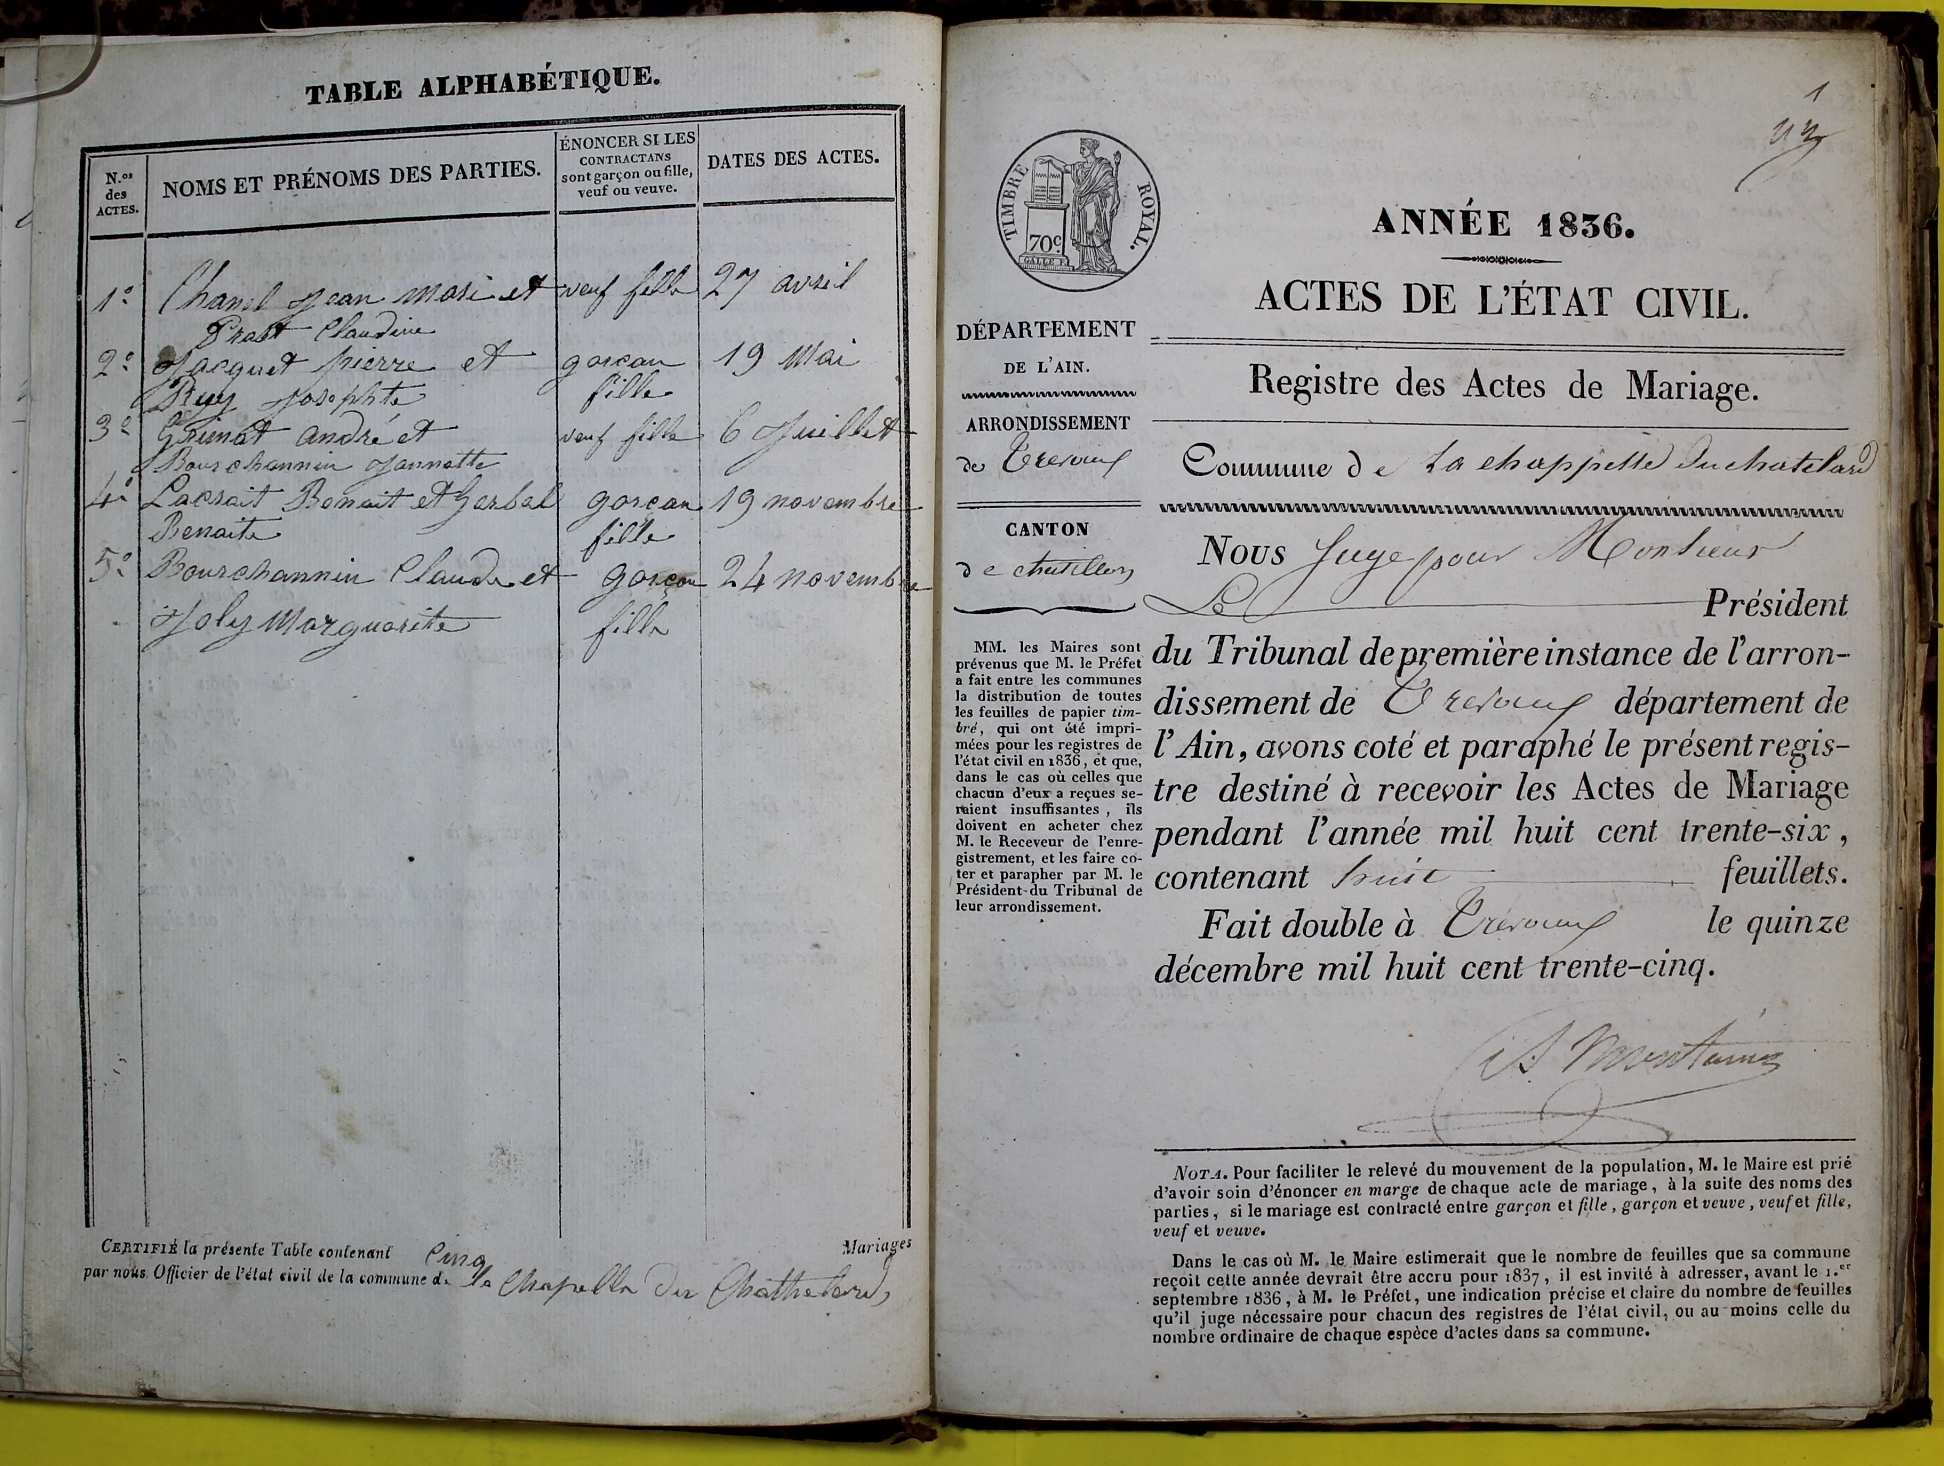 TABLE ALPHABÉTIQUE.
N.os des ACTES.
NOMS ET PRÉNOMS DES PARTIES.
ÉNONCER SI LES
CONTRACTANS
sont garçon ou fille,
veuf ou veuve.
DATES DES ACTES.
1º Chanel Jean Mari et veuf fille 27 avril
Prost Claudine
2º Jacquet pierre et garçon 19 Mai
Ruy Josephte fille
3º Grimat andré et veuf fille 6 Juillet
Bourchannin Jannette
4º Lacrait Benoit et Gerbel garçon 19 novembre
Benoite fille
5º Bourchannin Claude et garçon 24 novembre
Joly Marguerite fille
CERTIFIÉ la présente Table contenant Cinq Mariages
par nous Officier de l'état civil de la commune de la Chapelle du Chathelard
1
TIMBRE ROYAL.
70c
GALLE F.
ANNÉE 1836.
ACTES DE L'ÉTAT CIVIL.
Registre des Actes de Mariage.
Commune de La chappelle Duchatelard
DÉPARTEMENT
DE L'AIN.
ARRONDISSEMENT
de Trevoux
CANTON
de chatillon
MM. les Maires sont
prévenus que M. le Préfet
a fait entre les communes
la distribution de toutes
les feuilles de papier tim-
bré, qui ont été impri-
mées pour les registres de
l'état civil en 1836, et que,
dans le cas où celles que
chacun d'eux a reçues se-
raient insuffisantes, ils
doivent en acheter chez
M. le Receveur de l'enre-
gistrement, et les faire co-
ter et parapher par M. le
Président du Tribunal de
leur arrondissement.
Nous Juge pour Monsieur
Le Président
du Tribunal de première instance de l'arron-
dissement de Trevoux département de
l'Ain, avons coté et paraphé le présent regis-
tre destiné à recevoir les Actes de Mariage
pendant l'année mil huit cent trente-six,
contenant huit feuillets.
Fait double à Trévoux le quinze
décembre mil huit cent trente-cinq.
NOTA. Pour faciliter le relevé du mouvement de la population, M. le Maire est prié
d'avoir soin d'énoncer en marge de chaque acte de mariage, à la suite des noms des
parties, si le mariage est contracté entre garçon et fille, garçon et veuve, veuf et fille,
veuf et veuve.
Dans le cas où M. le Maire estimerait que le nombre de feuilles que sa commune
reçoit cette année devrait être accru pour 1837, il est invité à adresser, avant le 1.er
septembre 1836, à M. le Préfet, une indication précise et claire du nombre de feuilles
qu'il juge nécessaire pour chacun des registres de l'état civil, ou au moins celle du
nombre ordinaire de chaque espèce d'actes dans sa commune.